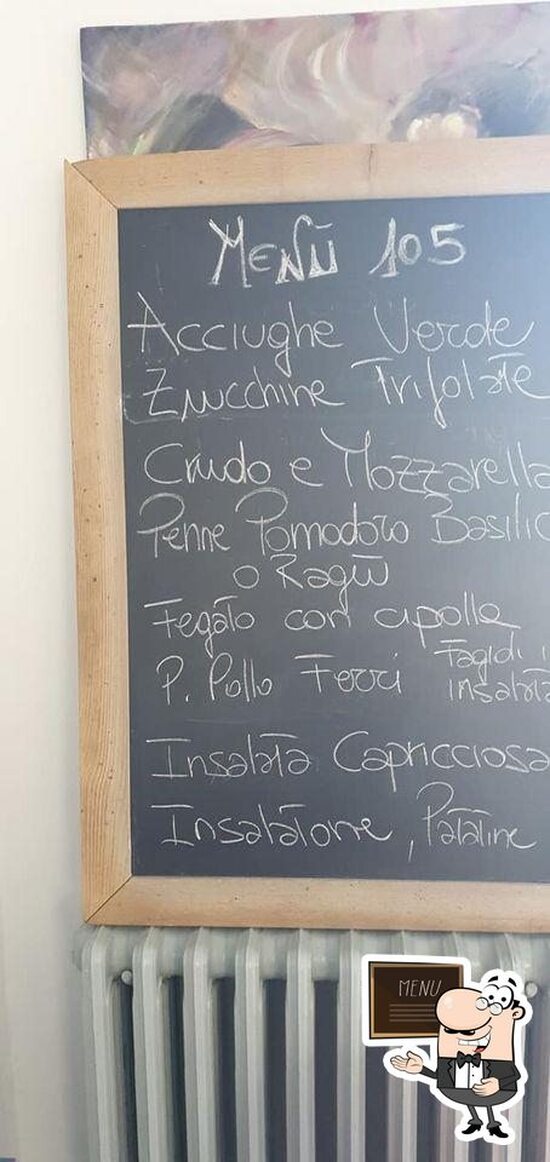 Menù 105
Acciughe Verde
Zucchine Trifolate
Crudo e Mozzarella
Penne Pomodoro Basilic
o Ragù
Fegato con cipolle
P. Pollo Ferri Fagioli i
insalata
Insalata Capricciosa
Insalatone, Patatine
MENU